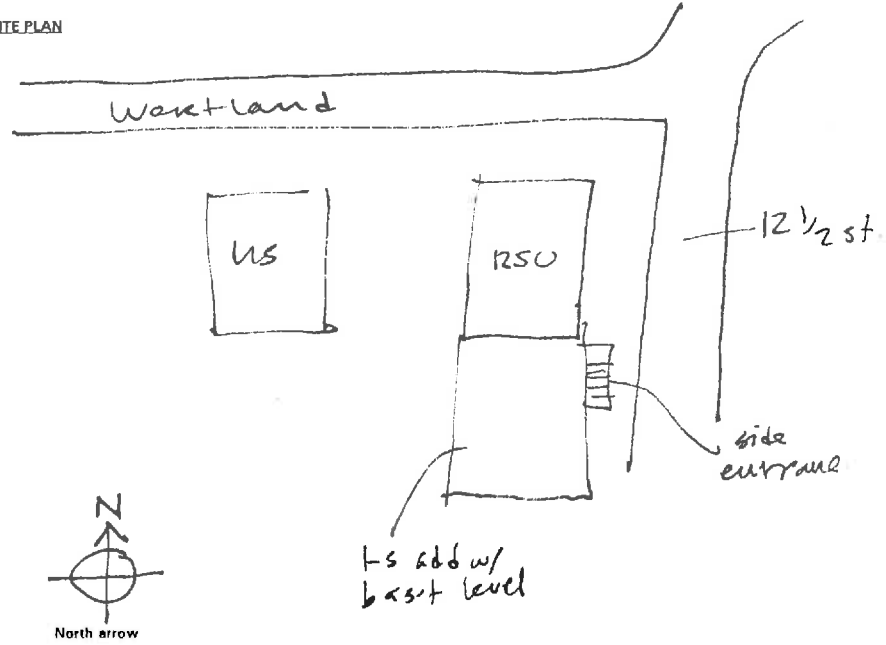 ITE PLAN
Wertland
12 1/2 st.
US
RSU
side
entrance
1-s add w/
bas't level
N
North arrow